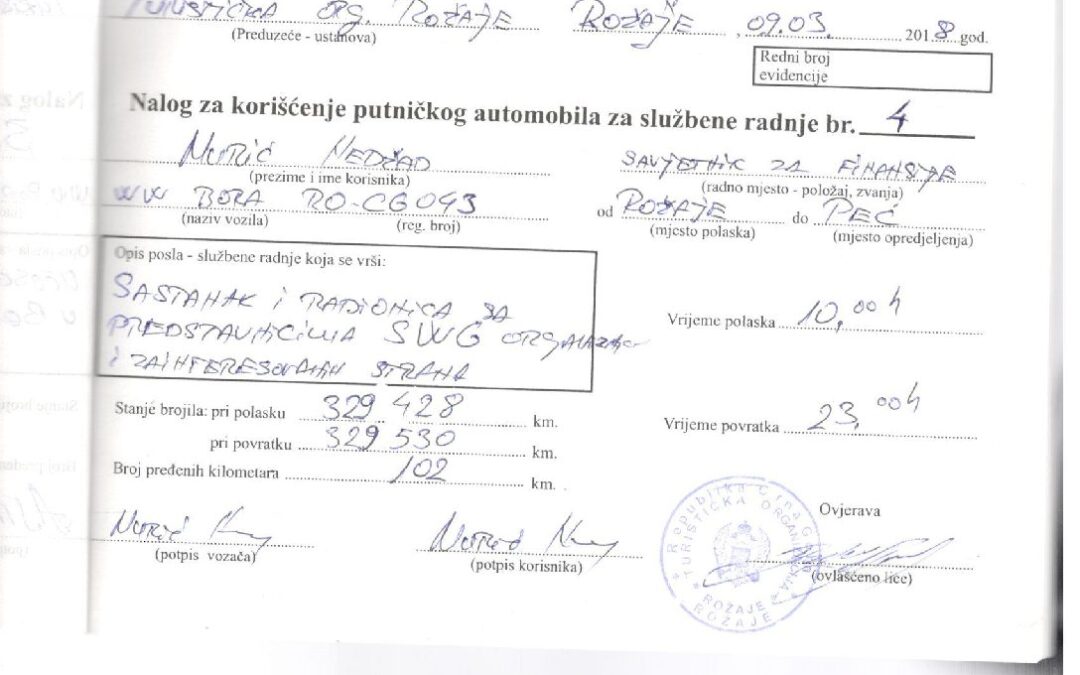 TURISTIČKA ORG. ROŽAJE ROŽAJE, 09.03. 2018 god.
(Preduzeće - ustanova)
Redni broj
evidencije
Nalog za korišćenje putničkog automobila za službene radnje br. 4
MURIĆ NEDŽAD SAVJETNIK ZA FINANSIJE
(prezime i ime korisnika) (radno mjesto - položaj, zvanja)
WW BORA RO-CG043 od ROŽAJE do PEĆ
(naziv vozila) (reg. broj) (mjesto polaska) (mjesto opredjeljenja)
Opis posla - službene radnje koja se vrši:
SASTANAK I RADIONICA ZA
PREDSTAVNICIMA SWG ORGANIZACIJE
I ZAINTERESOVANIH STRANA
Vrijeme polaska 10,00 h
Stanje brojila: pri polasku 329 428 km.
Vrijeme povratka 23,00 h
pri povratku 329 530 km.
Broj pređenih kilometara 102 km.
Ovjerava
Murić
(potpis vozača)
Murić
(potpis korisnika)
(ovlašćeno lice)
Republika Crna Gora
TURISTIČKA ORGANIZACIJA
ROŽAJE
ROŽAJE